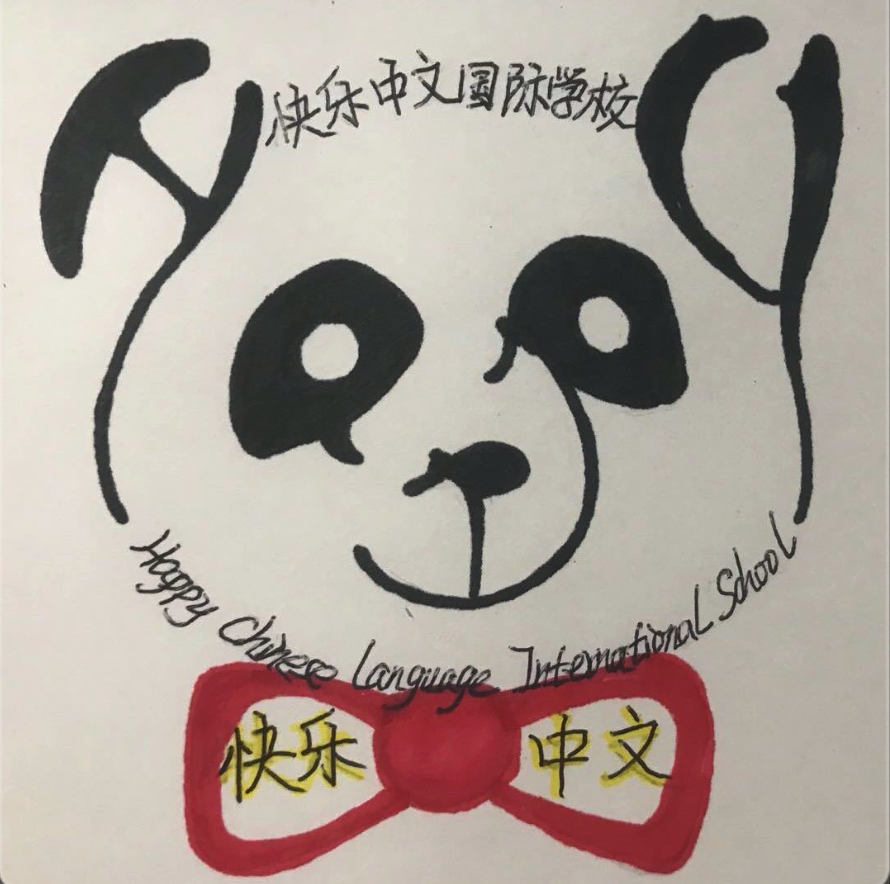 快乐中文国际学校
Happy Chinese Language International School
快乐 中文